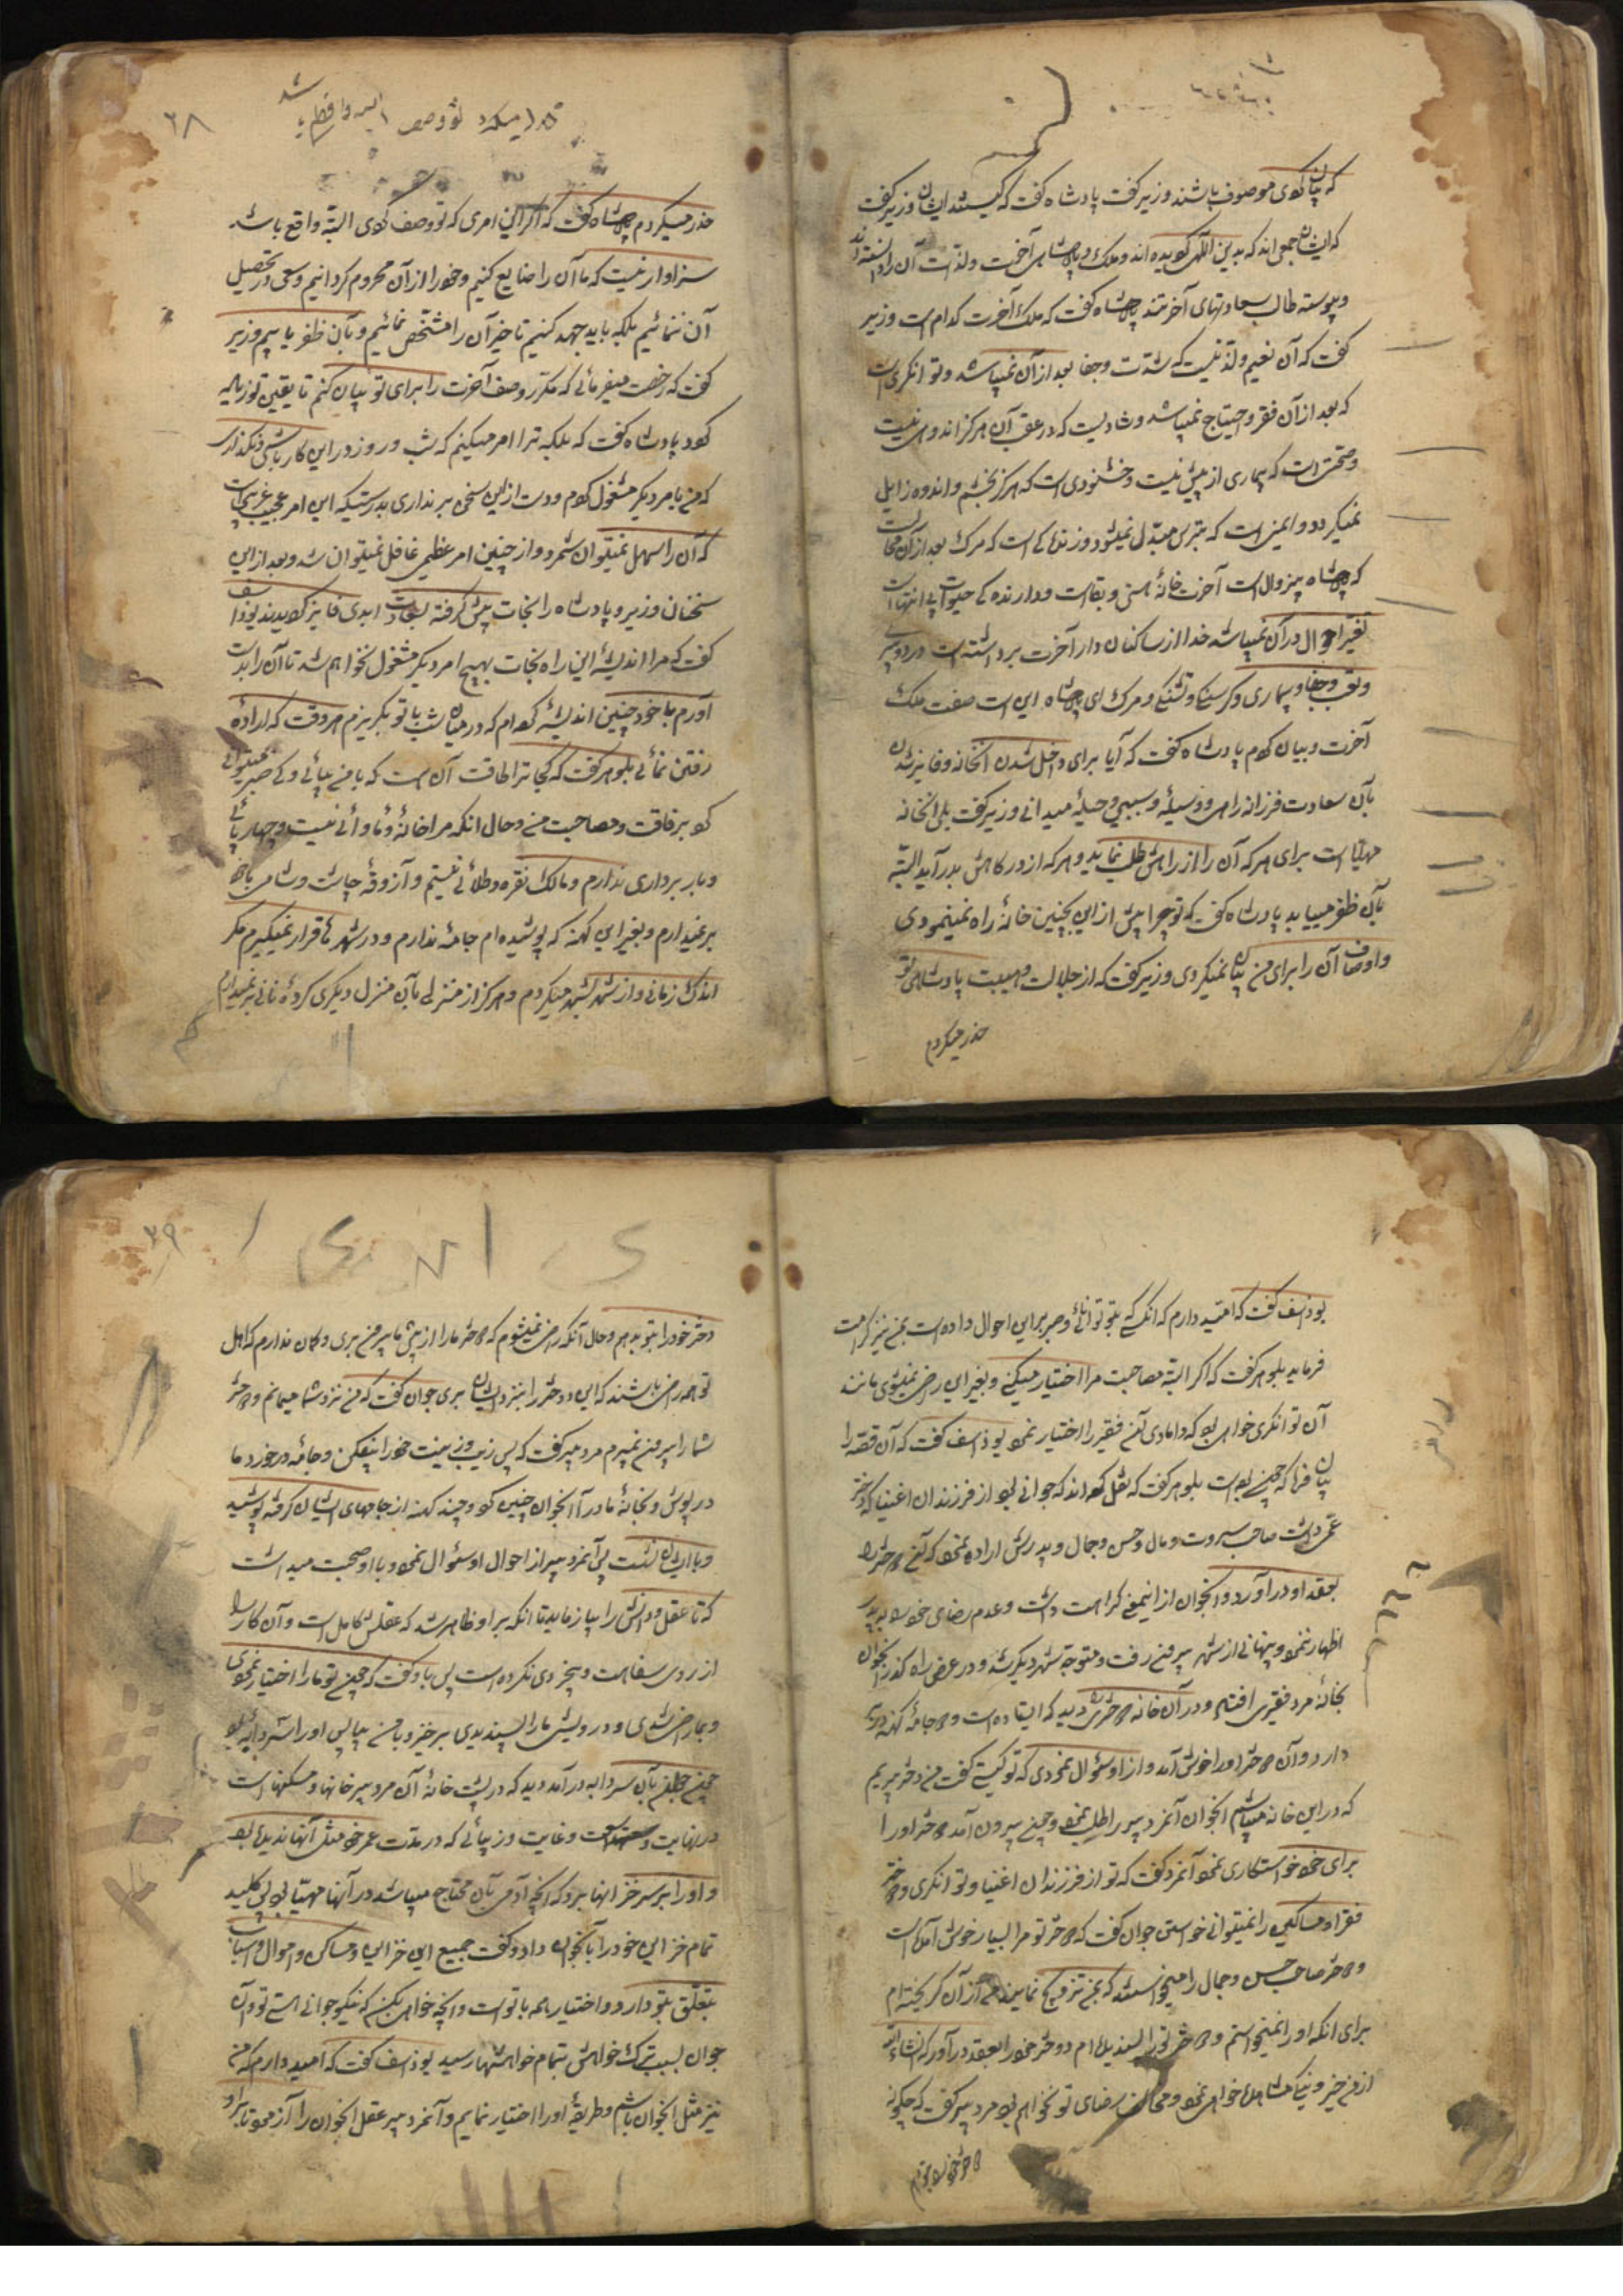 که چنان کوی موصوف باشند وزیر کفت پادشاه کفت که کیستند ایشان وزیر کفت
که ایشان جمعی اند که بدین الهی کرویده اند و ملک و پادشاهی آخرت و لذت آن را دانسته اند
و پیوسته طالب سعادتهای آخرتند پادشاه کفت که ملک آخرت کدام است وزیر
کفت که آن نعیم و لذتیست که شدت و جفا بعد از آن نمیباشد و توانکری است
که بعد از آن فقر و احتیاج نمیباشد و شادیست که در عقب آن هرکز اندوهی نیست
و صحتی است که بیماری از پیش نیست و خشنودی است که هرکز بخشم و اندوه زایل
نمیکردد و ایمنی است که بترس مبدل نمیشود و زندکی است که مرک بعد از آن محالست
که پادشاه بیزوال است آخرت خانهٔ هستی و بقا است و دارنده کی حیوات بی انتها است
تغیر احوال در آن نمیباشد خدا از ساکنان دار آخرت برداشته است درد و پیری
و تعب و جفا و بیماری و کرسنکی و تشنکی و مرک ای پادشاه این است صفت ملک
آخرت و بیان کردم پادشاه کفت که آیا برای داخل شدن آنخانه و فایز شدن
بآن سعادت فرزانه راهی و وسیلهٔ و سببی و حیلهٔ میدانی وزیر کفت بلی آنخانه
مهیا است برای هر که آن را از راهش طلب نماید و هر که از درکاهش بدر آید البته
بآن ظفر مییابد پادشاه کفت که تو چرا پیش از این بچنین خانهٔ راه نمینمودی
و اوصاف آن را برای من بیان نمیکردی وزیر کفت که از جلالت و هیبت پادشاهی تو
حذر میکردم
۲۸
حذر میکردم پادشاه کفت که اکر این امری که تو وصف کوی البته واقع باشد
سزاوار نیست که ما آن را ضایع کنیم و خود را از آن محروم کردانیم و سعی در تحصیل
آن ننمائیم بلکه باید جهد کنیم تا خیر آن را مشخص نمائیم و بآن ظفر یابیم وزیر
کفت که رخصت میفرمائی که مکرر وصف آخرت را برای تو بیان کنم تا یقین تو زیاده
کود پادشاه کفت که بلکه ترا امر میکنم که شب و روز در این کار باشی و نکذاری
که من بامر دیکر مشغول کردم و دست از این سخن بر نداری بدرستیکه این امر عجیب غریبی است
که آن را سهل نمیتوان شمرد و از چنین امر عظیمی غافل نمیتوان شد و بعد از این
سخنان وزیر و پادشاه راه نجات پیش کرفته بسعادت ابدی فایز کردیدند یوذاسف
کفت که مرا اندیشهٔ این راه نجات بهیچ امر دیکر مشغول نخواهم شد تا آن را بدست
آورم با خود چنین اندیشه کرده ام که در میان شب با تو بکریزم هر وقت که ارادهٔ
رفتن نمائی بلوهر کفت که کجا ترا طاقت آن است که با من بیائی و کی صبر میتوانی
کرد بر رفاقت و مصاحبت من و حال آنکه مرا خانهٔ و مأوائی نیست و چهار پائی
و باربرداری ندارم و مالک نقره و طلائی نیستم و آذوقهٔ چاشت و شام با خود
بر نمیدارم و بغیر این کهنه که پوشیده ام جامهٔ ندارم و در شهرها قرار نمیکیرم مکر
اندک زمانی و از شهر بشهر میکردم و هرکز از منزلی بآن منزل دیکری کردهٔ نانی بر نمیدارم
یوذاسف کفت که امید دارم که آنکسی که بتو توانائی و صبر بر این احوال داده است بمن نیز کرامت
فرماید بلوهر کفت که اکر البته مصاحبت مرا اختیار میکنی و بغیر این راضی نمیشوی مانند
آن توانکری خواهی بود که دامادی آن فقیر را اختیار نمود یوذاسف کفت که آن قصه را
بیان فرما که چون بوده است بلوهر کفت که نقل کرده اند که جوانی بود از فرزندان اغنیا که دختر
عمی داشت صاحب ثروت و مال و حسن و جمال و پدرش اراده نمود که آن دختر را
بعقد او در آورد و آنجوان از اینمعنی کراهت داشت و عدم رضای خود را به پدر
اظهار ننمود و پنهانی از شهر بیرون رفت و متوجه شهر دیکر شد و در عرض راه کذر آنجوان
بخانهٔ مرد فقیری افتاد و در آن خانه دختری دید که ایستاده است و جامهٔ کهنه در بر
دارد و آن دختر او را خوش آمد و از او سؤال نمودی که تو کیستی کفت من دختر پیریم
که در این خانه میباشد آنجوان آن مرد پیر را طلب نمود و چون بیرون آمد دختر او را
برای خود خواستکاری نمود آنمرد کفت که تو از فرزندان اغنیا و توانکری و دختر
فقرا و مساکین را نمیتوانی خواستن جوان کفت که دختر تو مرا بسیار خوش آمده است
و دختر صاحب حسن و جمال را میخواستند که بمن تزویج نمایند من از آن کریخته ام
برای آنکه او را نمیخواستم و دختر تو را پسندیده ام دختر خود را بعقد من در آور که انشاء الله
از من خیر و نیکی مشاهده خواهی نمود و مخالف رضای تو نخواهم بود مرد پیر کفت که چکونه
دختر خود را بتو دهم
۲۹
دختر خود را بتو بدهم و حال آنکه راضی نمیشوم که دختر ما را از پیش ما بیرون بری و کمان ندارم که اهل
تو هم راضی باشند که این دختر را بنزد ایشان بری جوان کفت که من نزد شما میمانم و دختر
شما را بیرون نمیبرم مرد پیر کفت که پس زیب و زینت خود را بیفکن و جامهٔ درخورد ما
در پوش و بخانهٔ ما در آ آنجوان چنین کرد و چند کهنه از جامهای ایشان کرفته پوشید
و با ایشان نشست پس آنمرد پیر از احوال او سؤال نمود و با او صحبت میداشت
که تا عقل و دانش را بیازماید تا آنکه بر او ظاهر شد که عقلش کامل است و آن کار را
از روی سفاهت و بیخردی نکرده است پس باو کفت که چون تو ما را اختیار نمودی
و بما راضی شدی و درویشی ما را پسندیدی برخیز و با من بیا پس او را بسردابه برد
چون جوان بآن سردابه در آمد دید که در پشت خانهٔ آن مرد پیر خانها و مسکنها است
در نهایت وسعت و غایت زیبائی که در مدت عمر خود مثل آنها ندیده بود
و او را بر سر خزانها برد که آنچه آدمی بآن محتاج میباشد در آنها مهیا بود پس کلید
تمام خزاین خود را بآنجوان داد و کفت جمیع این خزاین و مساکن و اموال و اسباب
بتعلق بتو دارد و اختیار همه با تو است و آنچه خواهی بکن که نیکو جوانی هستی تو و آن
جوان بسبب ترک خواهش بتمام خواهشها رسید یوذاسف کفت که امید دارم که من
نیز مثل آنجوان باشم و طریقهٔ او را اختیار نمایم و آنمرد پیر عقل آنجوان را آزمود تا بر او